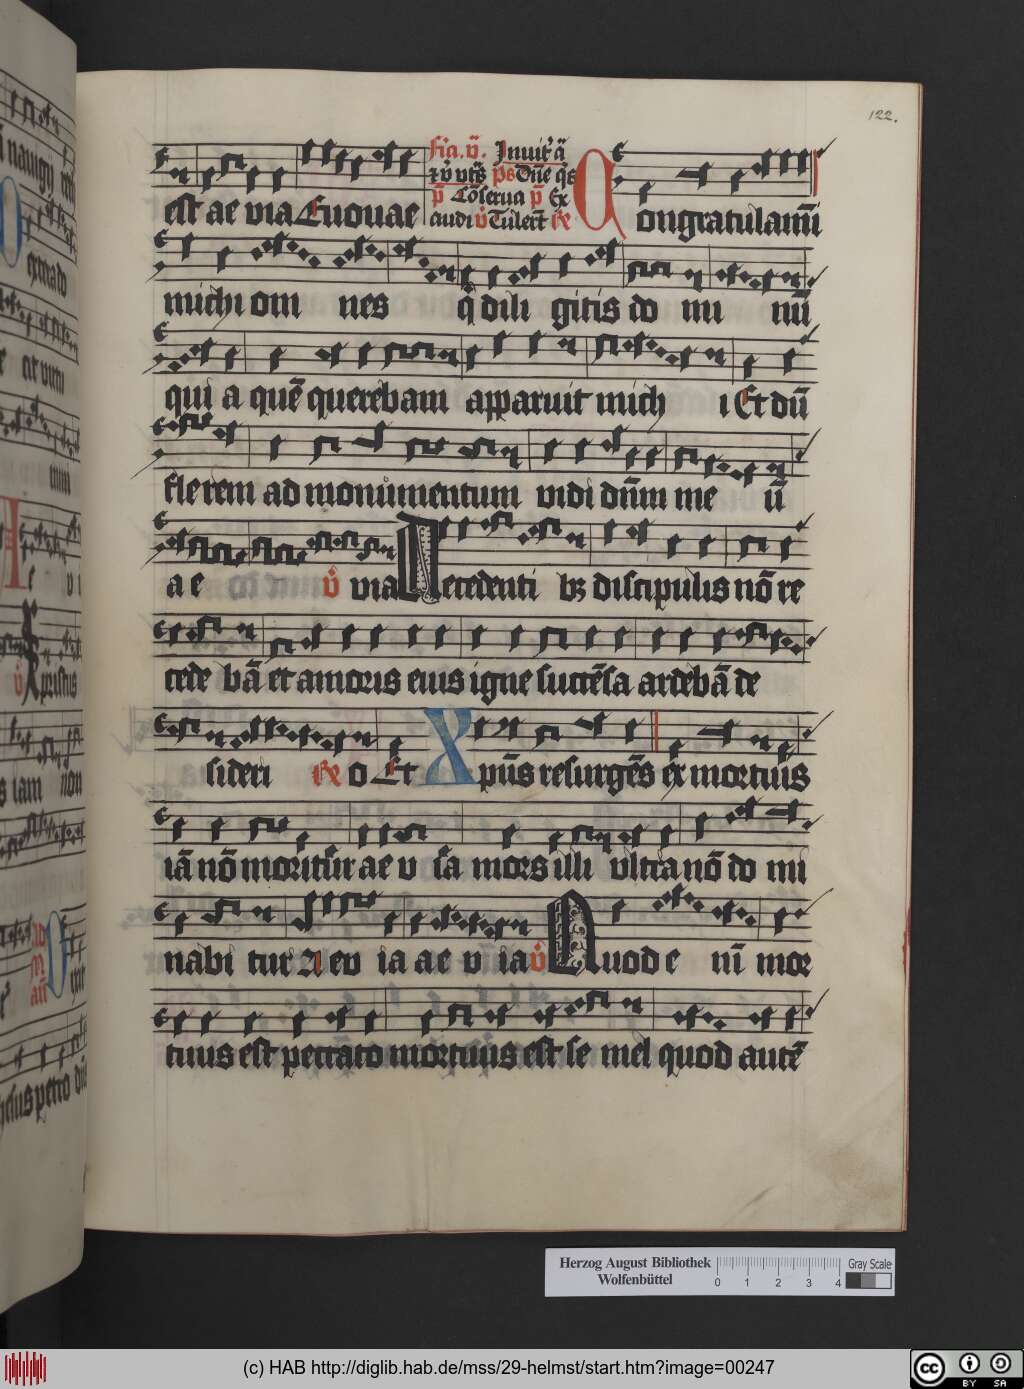 122.
est ae via Euouae
Fia. v̄. Inuit' a
xv̄ vts̄ ps Dn̄e qs
p̄ Cōserua p̄ Ex
audi v̄ Tulert̄ R̄
Congratulamīi
michi om nes q̄ dili gitis do mi nū
qui a quē querebam apparuit mich i Et dū
fle rem ad monumentum vidi dn̄m me ū
a e v̄ via Recedenti bꝫ discipulis nō re
cede bā et amoris eius igne succēsa ardebā de
sideri R̄ o Et Xpūs resurgēs ex mortuis
iā nō moritur ae v ia mors illi vltra nō do mi
nabi tur Aev ia ae v ia v̄ Quod e nī mor
tuus est peccato mortuus est se mel quod autē
nauigij
extrado
Xpristus
s iam non
hesus petro
Herzog August Bibliothek
Wolfenbüttel
0 1 2 3 4
Gray Scale
(c) HAB http://diglib.hab.de/mss/29-helmst/start.htm?image=00247
cc BY SA